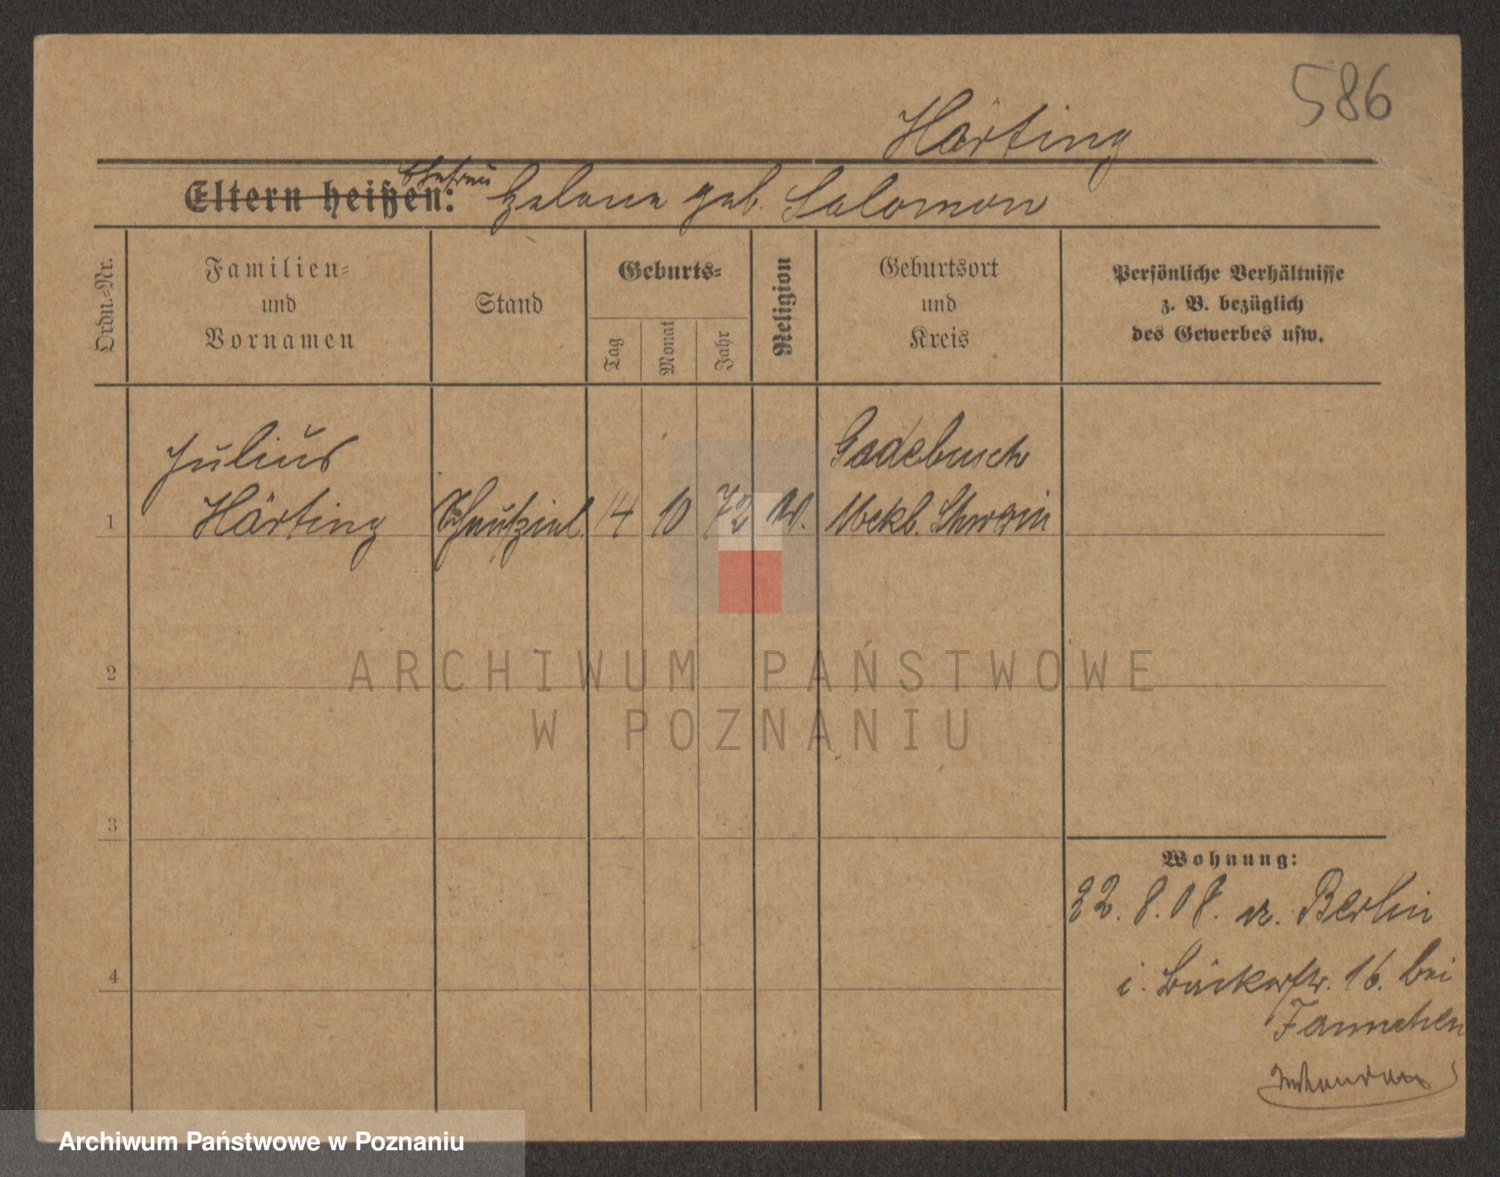 586
Härting
Eltern heißen: Ehefrau Helene geb. Salomon
Ordn.-Nr.
Familien-
und
Vornamen
Stand
Geburts-
Tag
Monat
Jahr
Religion
Geburtsort
und
Kreis
Persönliche Verhältnisse
z. B. bezüglich
des Gewerbes usw.
Julius
Härting
1
14
10
72
Gadebusch
Meckl. Schwerin
2
3
4
Wohnung:
22. 8. 08. v. Berlin
i. Bäckerstr. 16. bei
ARCHIWUM PAŃSTWOWE
W POZNANIU
Archiwum Państwowe w Poznaniu